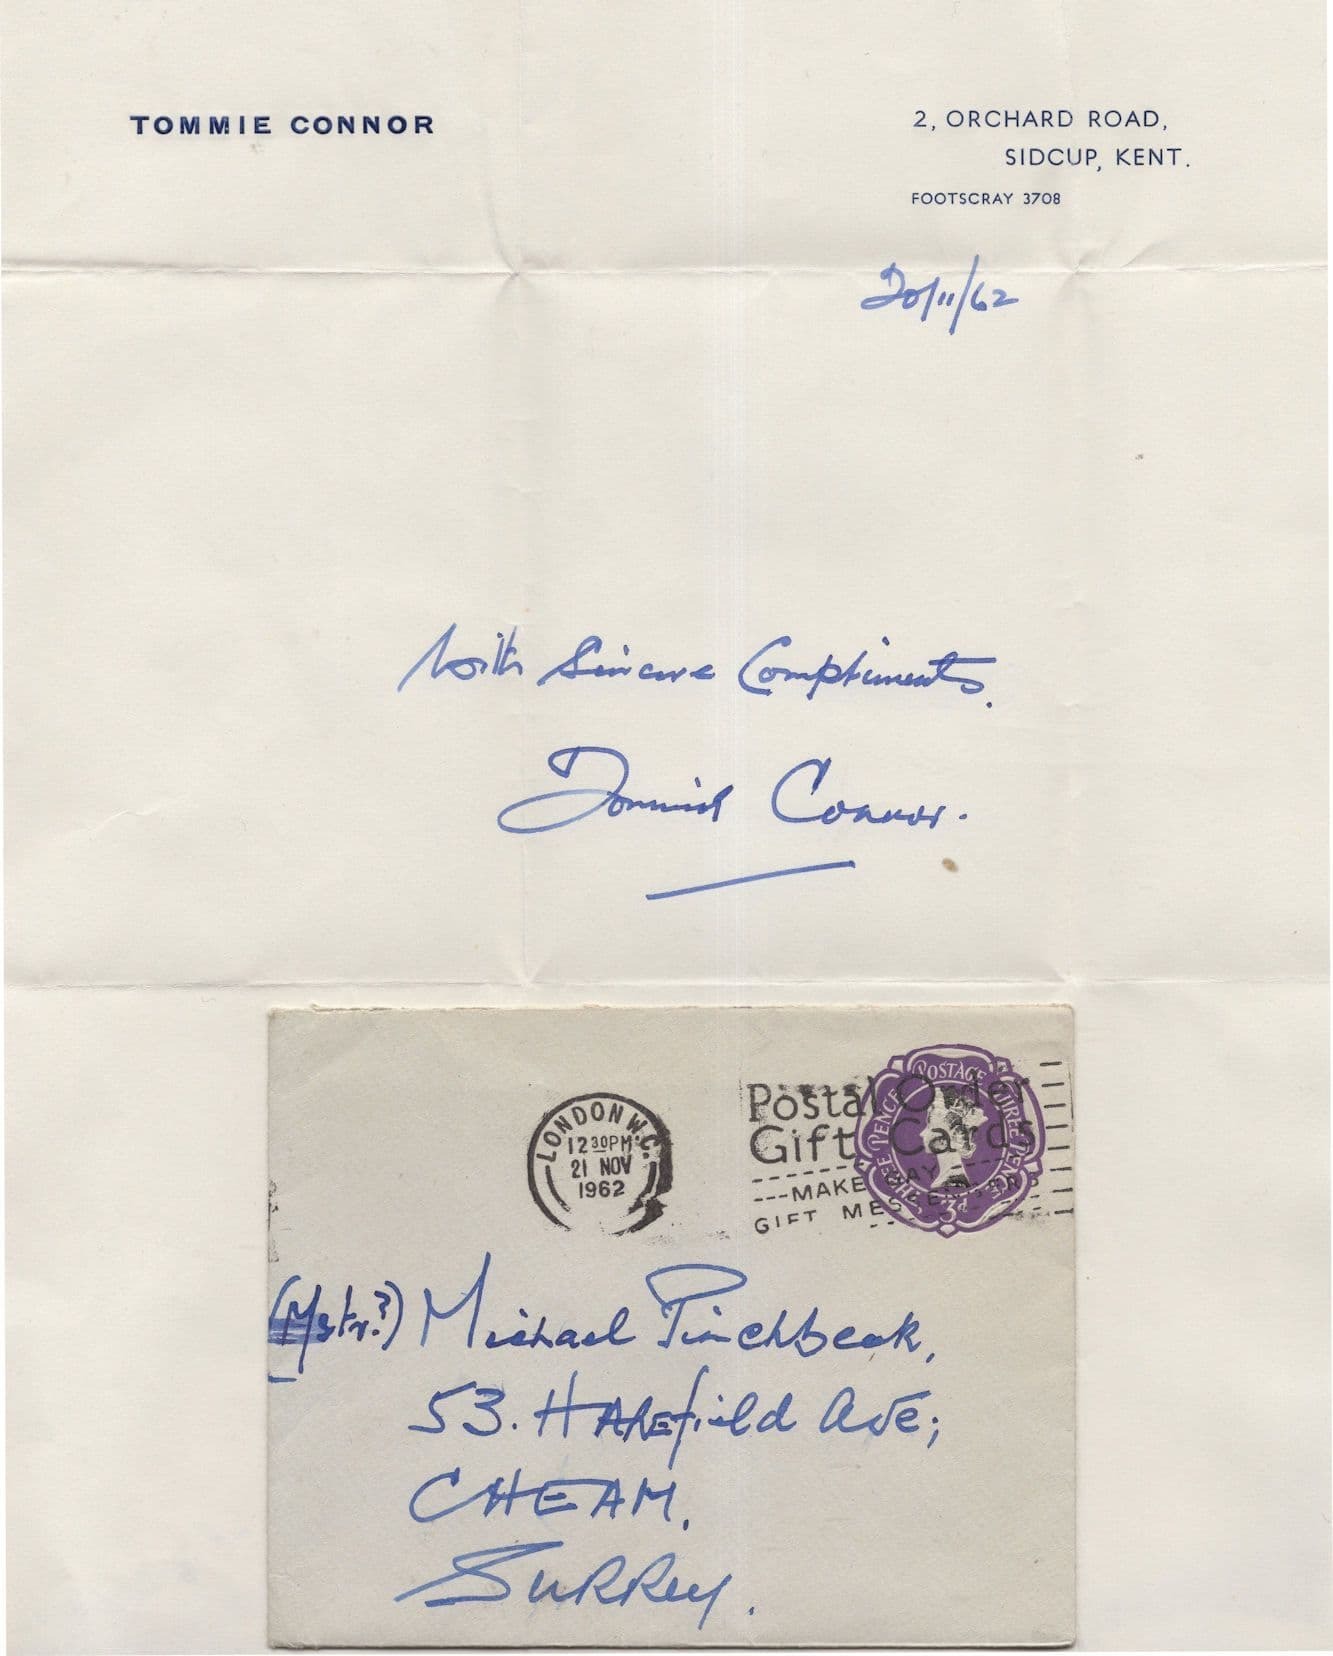 TOMMIE CONNOR
2, ORCHARD ROAD,
SIDCUP, KENT.
FOOTSCRAY 3708
20/11/62
With Sincere Compliments.
Tommie Connor.
LONDON W.C.
12 30PM
21 NOV
1962
Postal Order
Gift Cards
MAKE GAY
GIFT MES
POSTAGE
THREE PENCE
THREE PENCE
3D
(Mstr?) Michael Pinchbeck,
53. Harefield Ave;
CHEAM.
Surrey.